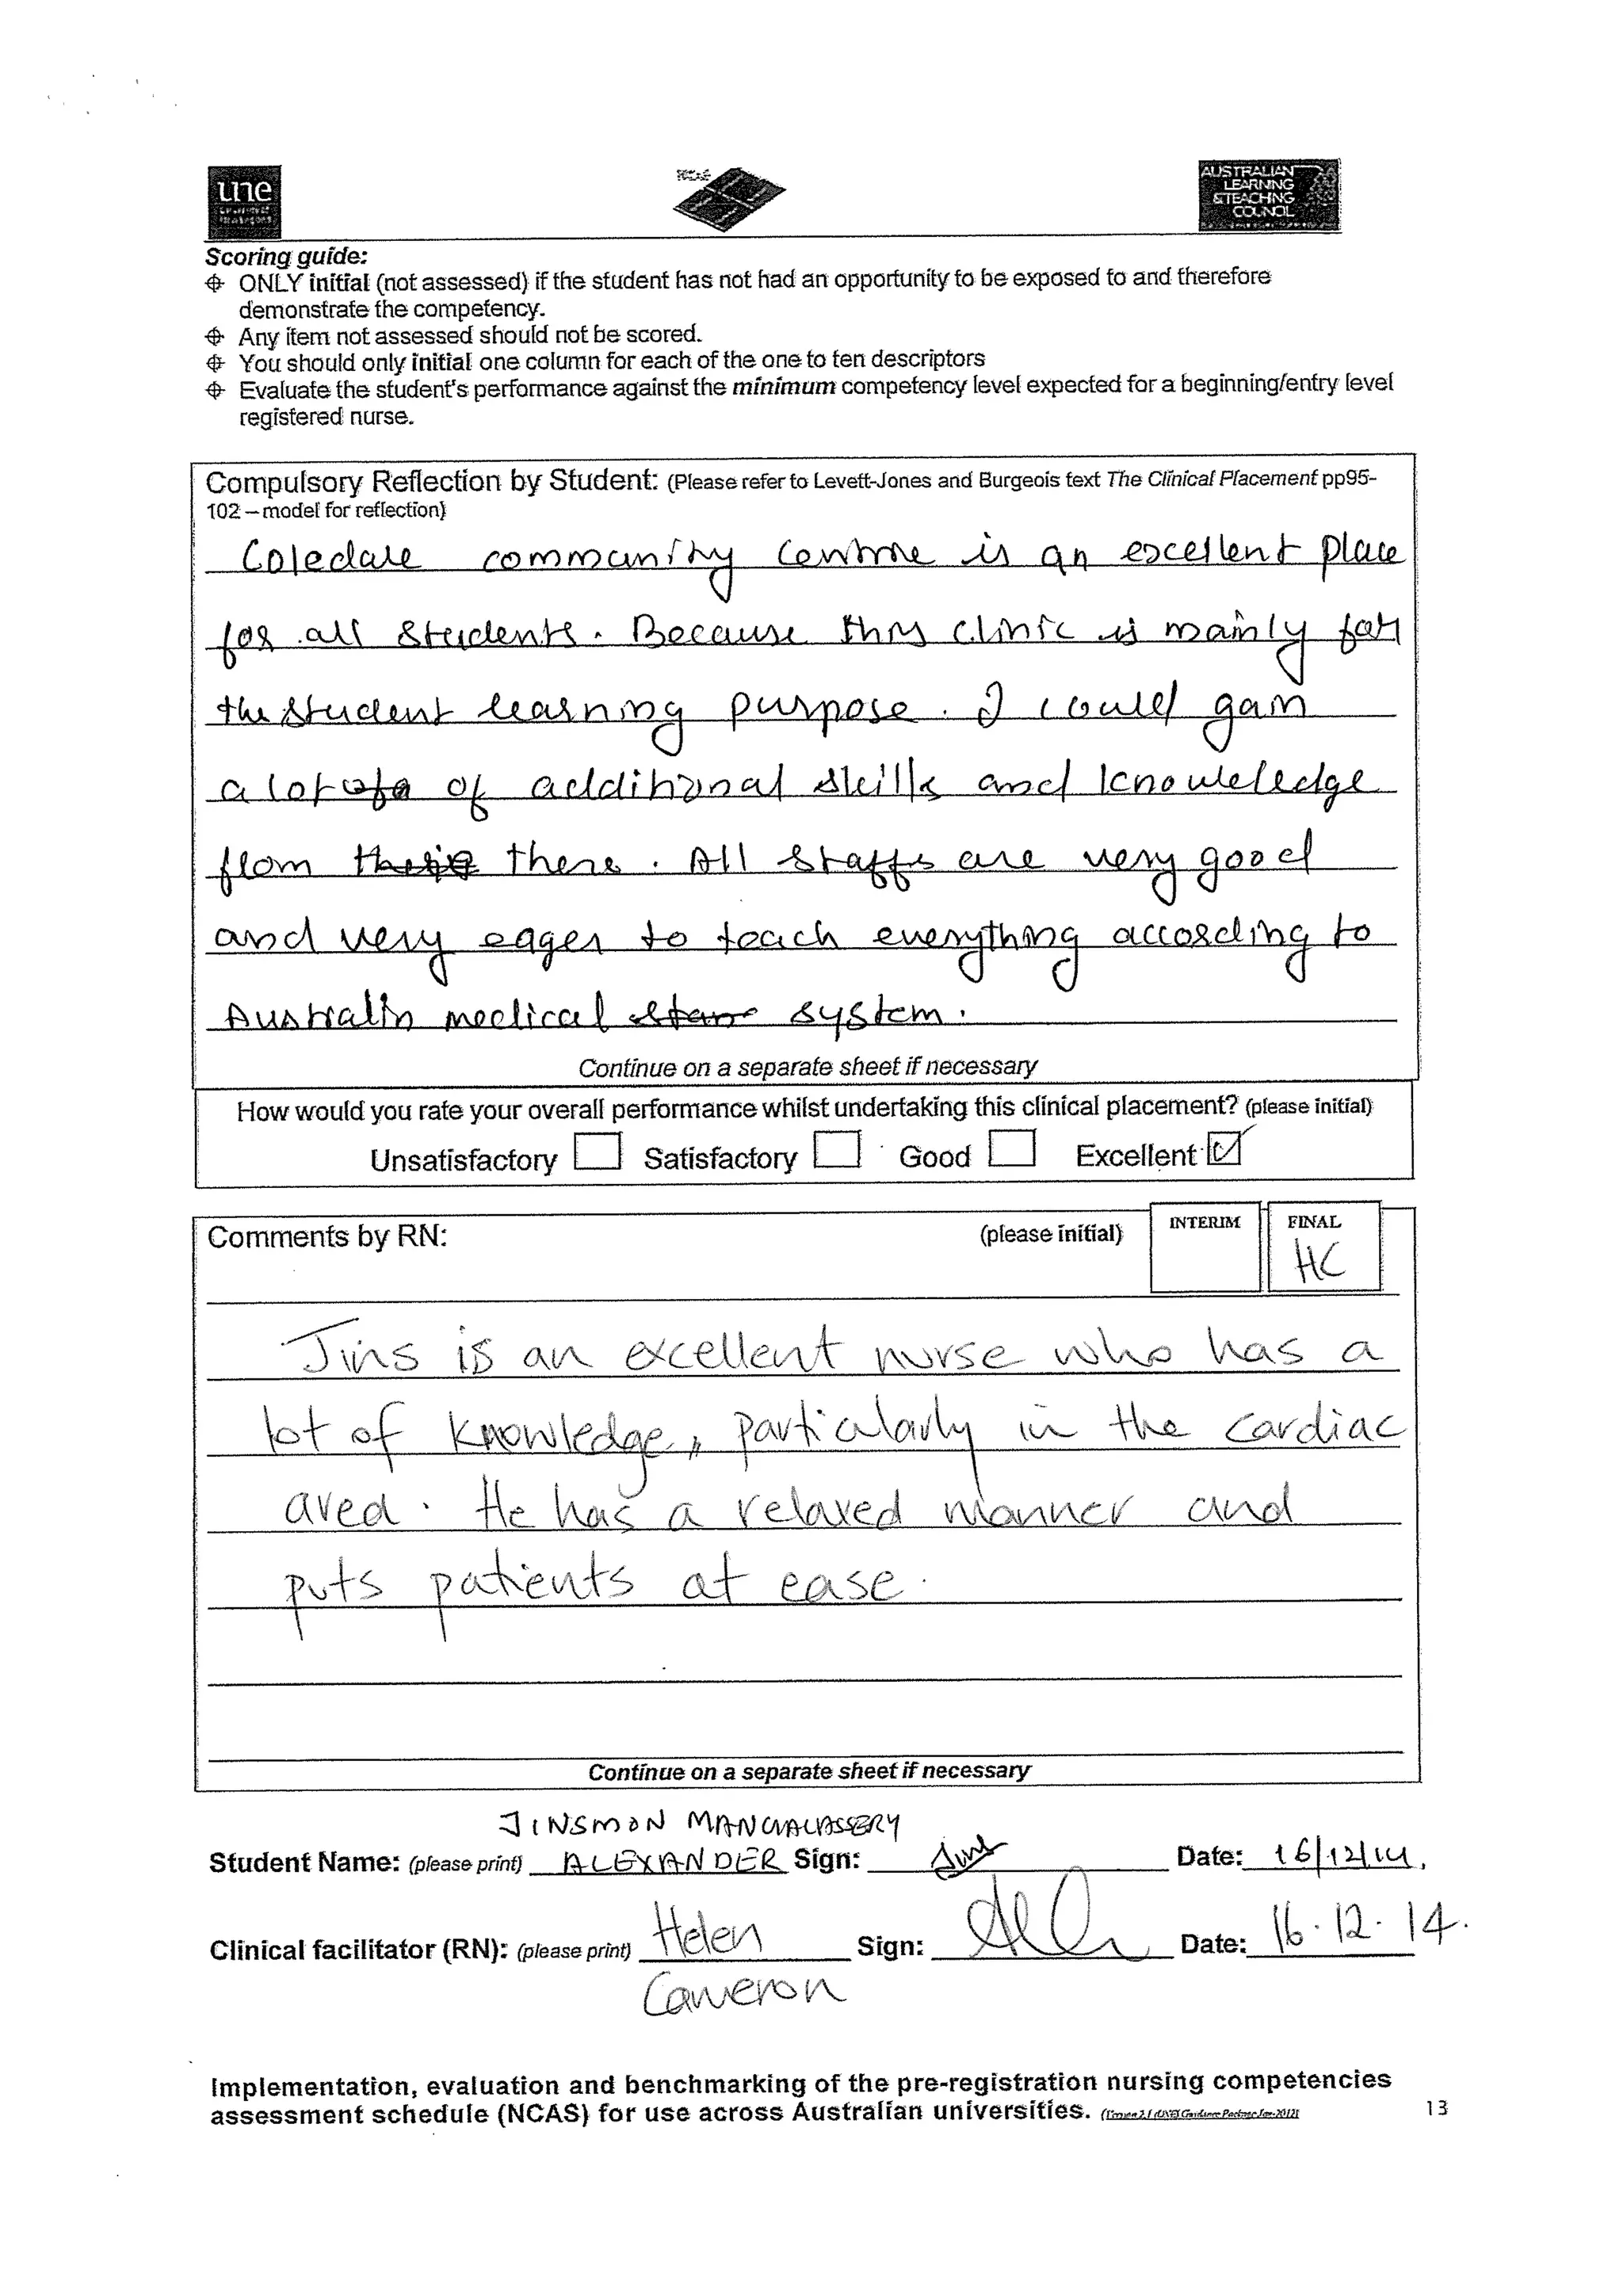 une
AUSTRALIAN
LEARNING
&TEACHING
COUNCIL
Scoring guide:
ONLY initial (not assessed) if the student has not had an opportunity to be exposed to and therefore
demonstrate the competency.
Any item not assessed should not be scored.
You should only initial one column for each of the one to ten descriptors
Evaluate the student's performance against the minimum competency level expected for a beginning/entry level
registered nurse.
Compulsory Reflection by Student: (Please refer to Levett-Jones and Burgeois text The Clinical Placement pp95-
102 – model for reflection)
Coledale community Centre is an excellent place
for all students. Because this clinic is mainly for
the student learning purpose. I could gain
a lot of additional skills and knowledge
from there. All staffs are very good
and very eager to teach everything according to
Australin medical system.
Continue on a separate sheet if necessary
How would you rate your overall performance whilst undertaking this clinical placement? (please initial)
Unsatisfactory Satisfactory Good Excellent
Comments by RN: (please initial) INTERIM FINAL
HC
Jins is an excellent nurse who has a
lot of knowledge, particularly in the cardiac
area. He has a relaxed manner and
puts patients at ease.
Continue on a separate sheet if necessary
JINSMON
Student Name: (please print) ALEXANDER Sign: Date: 16/12/14.
Clinical facilitator (RN): (please print) Helen Sign: Date: 16.12.14.
Cameron
Implementation, evaluation and benchmarking of the pre-registration nursing competencies
assessment schedule (NCAS) for use across Australian universities.
13